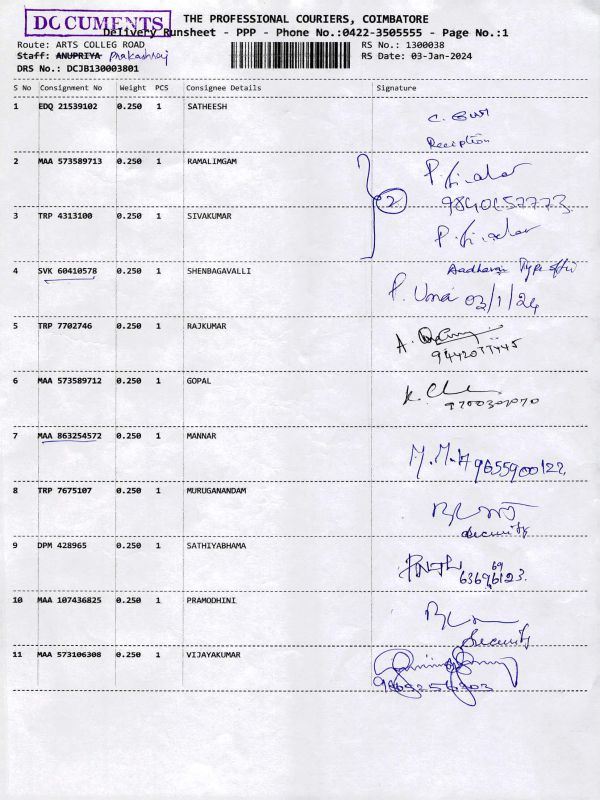 DOCUMENTS
THE PROFESSIONAL COURIERS, COIMBATORE
Delivery Runsheet - PPP - Phone No.:0422-3505555 - Page No.:1
Route: ARTS COLLEG ROAD RS No.: 1300038
Staff: ANUPRIYA Prakashraj RS Date: 03-Jan-2024
DRS No.: DCJB130003801
S No Consignment No Weight PCS Consignee Details Signature
1 EDQ 21539102 0.250 1 SATHEESH
Reception
2 MAA 573589713 0.250 1 RAMALIMGAM
2 9840657773
3 TRP 4313100 0.250 1 SIVAKUMAR
4 SVK 60410578 0.250 1 SHENBAGAVALLI
P. Uma 03/1/24
5 TRP 7702746 0.250 1 RAJKUMAR
6 MAA 573589712 0.250 1 GOPAL
7 MAA 863254572 0.250 1 MANNAR
9655900122
8 TRP 7675107 0.250 1 MURUGANANDAM
Security
9 DPM 428965 0.250 1 SATHIYABHAMA
10 MAA 107436825 0.250 1 PRAMODHINI
Security
11 MAA 573106308 0.250 1 VIJAYAKUMAR